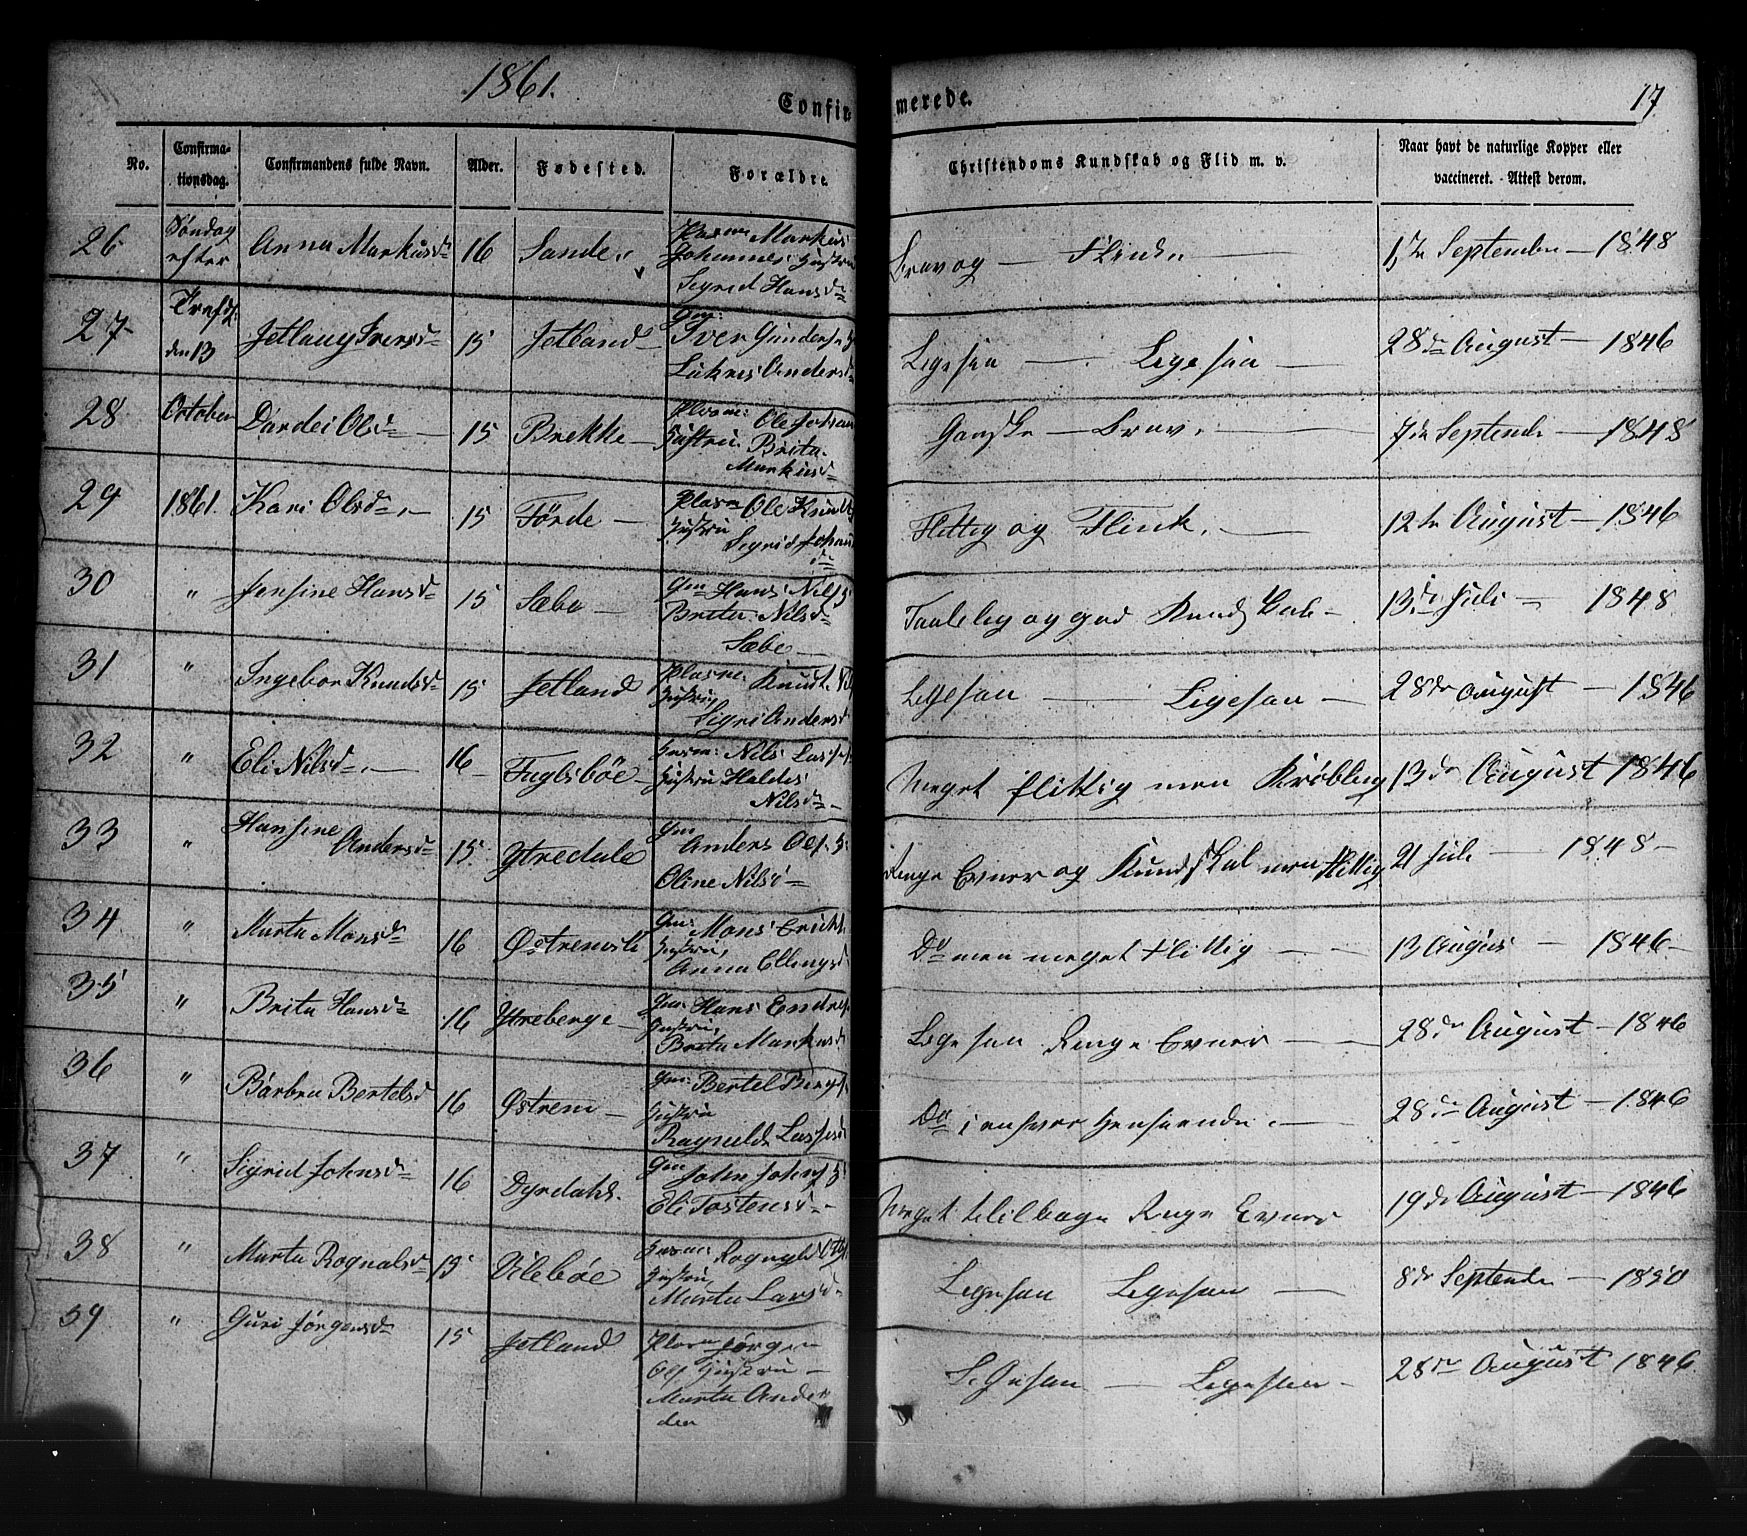 1861.
17.
Confir- merede.
No. Confirma-tionsdag. Confirmandens fulde Navn. Alder. Fødested. Forældre. Christendoms Kundskab og Flid m. v. Naar havt de naturlige Kopper eller vaccineret. - Attest derom.
26 Søndag efter Anna Markusd 16 Sande Markus Johannes Hustru Sigrid Hansd Brav og — Flink — September — 1848
27 Trefd den 13 Jetlaug Iversd 15 Jetland Gm: Iver Gunders Andersd Ligesaa — Ligesaa — 28de August — 1846
28 October Dardei Olsd — 15 Brekke — Plasm: Ole Johan Hustru Brita Markusd Ganske — Brav. — 7de Septemb — 1848
29 1861. Kari Olsd — 15 Förde — Plasm Ole Knuts Hustru Sigrid Johan Flittig og Flink. — 12te August — 1846
30 " Jensine Hansd 15 Sæbe — Gm Hans Nils Brita Nilsd Sæbe — Taalelig og god Kundskab — 13de Juli — 1848
31 " Ingebor Knudsd 15 Jetland Plasm: Knut Hustru Sigri Andersd Ligesaa — Ligesaa — 28de August — 1846
32 " Eli Nilsd — 16 Fuglsböe — Nils Hustru Nilsd — Meget flittig men 13de August 1846
33 " Hansine Andersd 15 Ytredale Gm Anders Ols Oline Nilsd — Ringe Evner og Kundskab men flittig 21 Juli — 1848 —
34 " Marta Monsd 16 Gm: Mons Hustru, Anna Ellingsd Do men meget flittig — 13 August — 1846 —
35 " Brita Hansd 16 Ytreberge — Gm: Hans Endres Hustru, Brita Markusd Ligesaa Ringe Evner — 28de August — 1846
36 " Barbra Bertelsd 16 Østrem — Gm: Bertel Hustru Do i enhver Henseende. — 28de August — 1846
37 " Sigrid Johnsd 16 Dyrdahl. Gm John Johns Eli Tostensd — Meget tilbage Ringe Evner 19de August — 1846
38 " Marta Rognalsd Vilebøe Hustru, Marta Larsd Ligesaa Ligesaa — 8de Septemb — 1850
39 " Guri Jörgensd 15 Jetland Jörgen Ols Hustru — Marta Ander den Ligesaa — Ligesaa — 28de August 1846